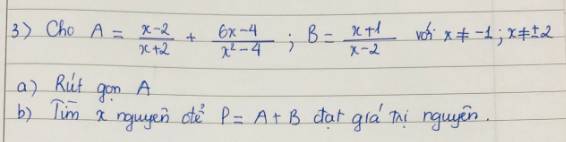 3) Cho A = (x-2)/(x+2) + (6x-4)/(x²-4) ; B = (x+1)/(x-2) với x ≠ -1 ; x ≠ ±2
a) Rút gọn A
b) Tìm x nguyên để P = A + B đạt giá trị nguyên.